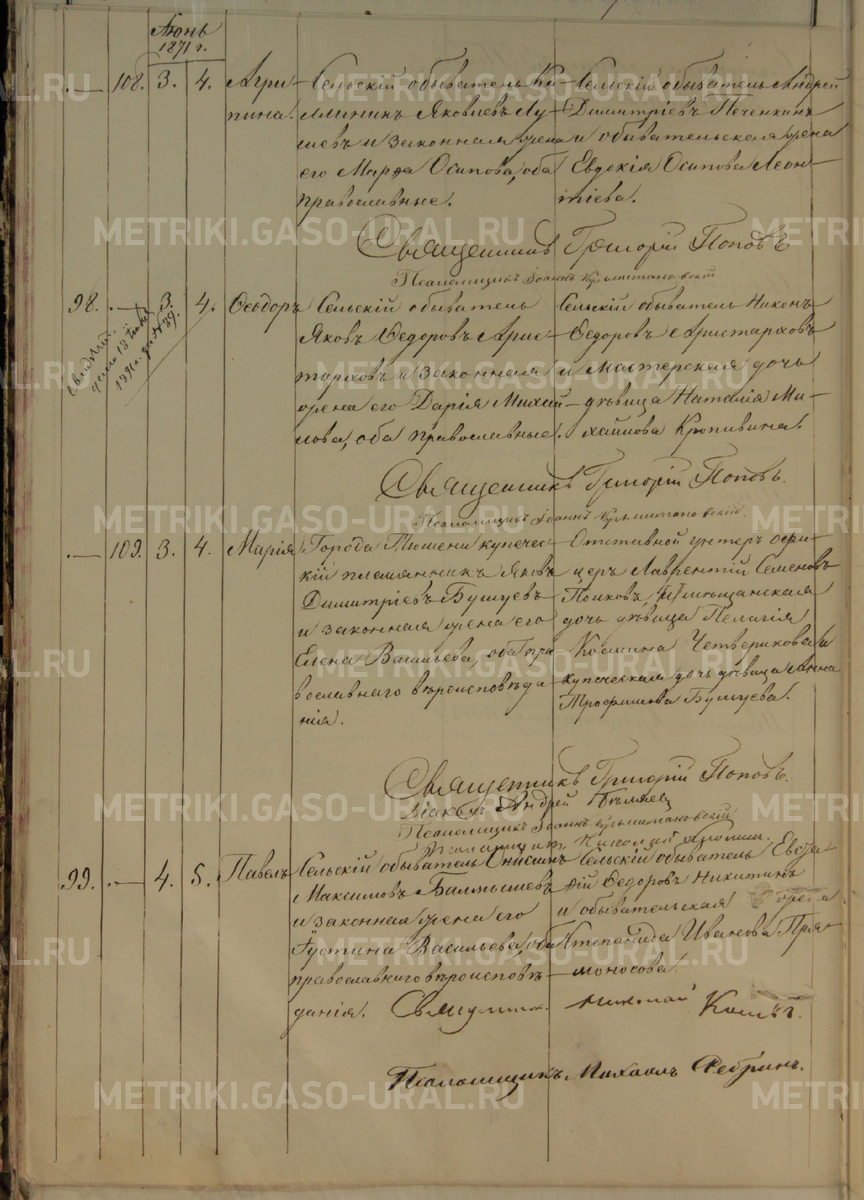 Іюнь
1871 г.
— 108. 3. 4. Агри-
пина.
Сельскій обыватель Ки-
Яковлевъ Лу-
шевъ и законная жена
его Марфа Осипова, оба
православные.
Сельскій обыватель Андрей
Димитріевъ Печенкинъ
и обывательская жена
Евдокія Осипова Леон-
тіева.
Священникъ Григорій Поповъ
Псаломщикъ Іоаннъ
98. — 3. 4. Ѳеодоръ
1871 г. за № 39.
Сельскій обыватель
Яковъ Ѳедоровъ Арис-
тарховъ и законная
жена его Дарія Михай-
лова, оба православные.
Сельскій обыватель Никонъ
Ѳедоровъ Аристарховъ
и Мастерская дочь
дѣвица Наталія Ми-
хайлова Кропивина.
Священникъ Григорій Поповъ.
Псаломщикъ Іоаннъ
— 109. 3. 4. Марія
Города Тюмени купечес-
кій племянникъ Яковъ
Димитріевъ Бушуевъ
и законная жена его
Елена Васильева, оба пра
вославнаго вѣроисповѣда
нія.
Отставной унтеръ офи-
церъ Лаврентій Семеновъ
Поповъ, мѣщанская
дочь дѣвица Пелагія
Космина Четверикова и
купеческая дочь дѣвица Анна
Трофимова Бушуева.
Священникъ Григорій Поповъ.
Діаконъ Андрей
Псаломщикъ Іоаннъ
99. — 4. 5. Павелъ
Сельскій обыватель Онисимъ
Максимовъ Балмышевъ
и законная жена его
Іустина Васильева, оба
православнаго вѣроисповѣ-
данія.
Сельскій обыватель Евста-
ѳій Ѳедоровъ Никитинъ
и обывательская жена
Степанида Иванова Пря-
моносова.
Священникъ Николай
Псаломщикъ Михаилъ Ребринъ.
METRIKI.GASO-URAL.RU